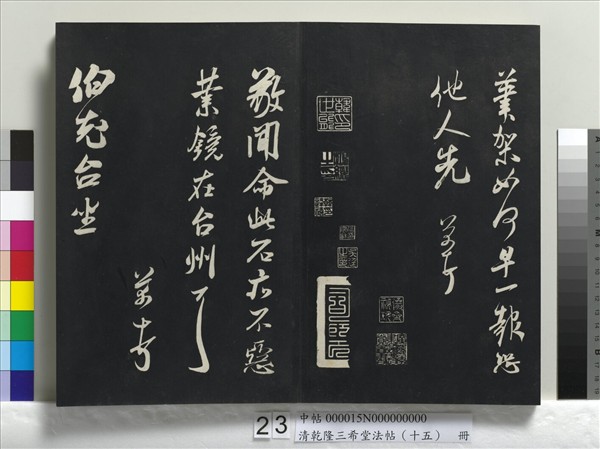 架如何早一報恐
他人先
敬聞命此石亦不惡
業鏡在台州
伯充台坐
23
中帖 000015N000000000
清乾隆三希堂法帖(十五) 冊